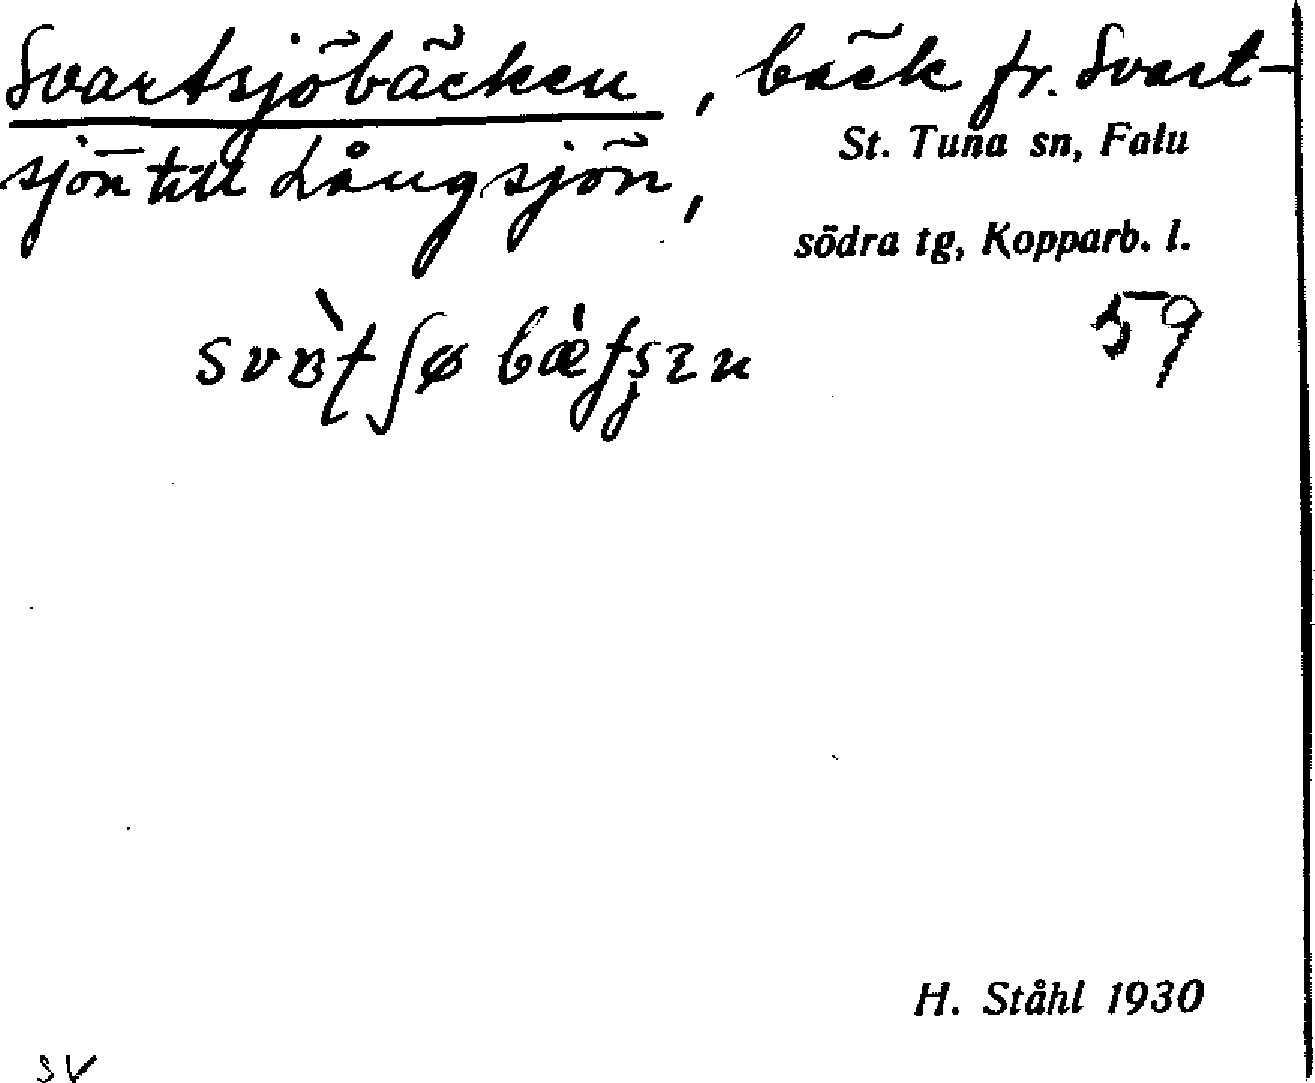 Svartsjöbäcken, bäck fr. Svart-
sjön till Långsjön,
St. Tuna sn, Falu
södra tg, Kopparb. l.
59
H. Ståhl 1930
SV